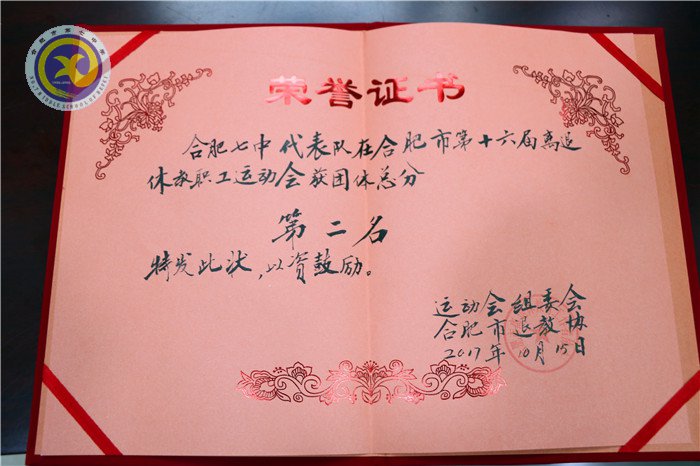 合肥市第七中学
NO.7 MIDDLE SCHOOL OF HEFEI
荣誉证书
合肥七中代表队在合肥市第十六届离退
休教职工运动会获团体总分
第二名
特发此状，以资鼓励。
运动会组委会
合肥市退教协
2017年10月15日